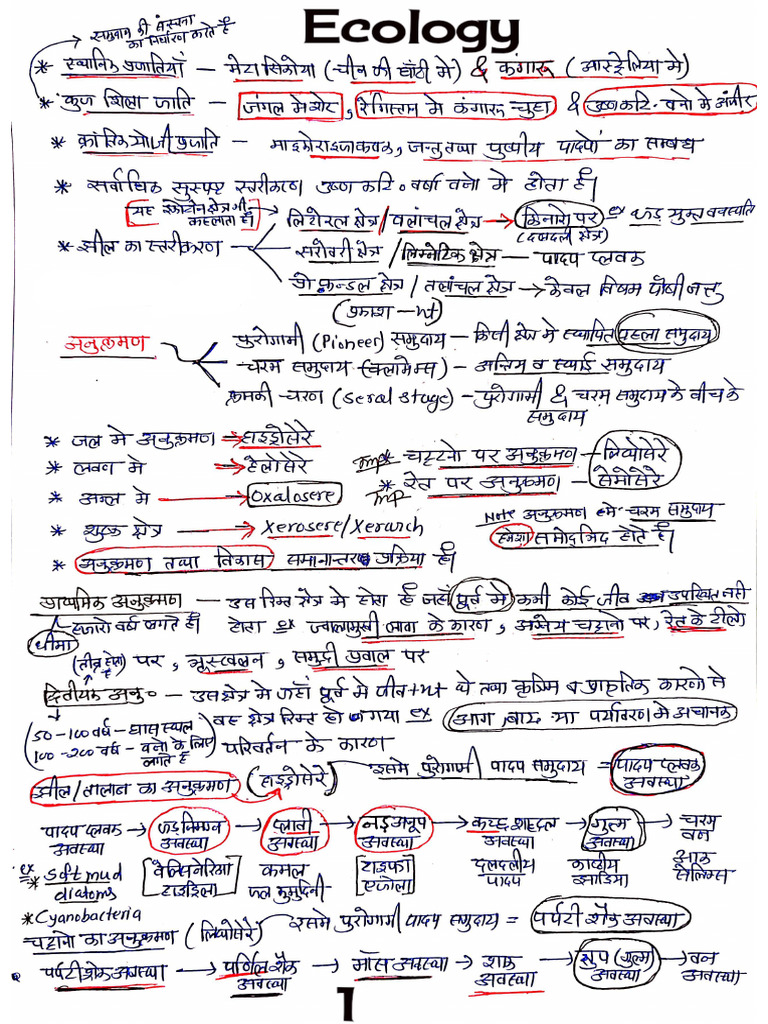 Ecology
→ समुदाय की संरचना का निर्धारण करते हैं
* स्थानिक प्रजातियाँ – मेटासिकोया (चीन की घाँटी में) & कंगारू (आस्ट्रेलिया में)
* कुंज शिला जाति – जंगल में शेर, रेगिस्तान में कंगारू चुहा & उष्ण कटि. वनो में अंजीर
* क्रांतिक योजी प्रजाति – माइकोराइजा कवक, जन्तु तथा पुष्पीय पादपों का सम्बंध
* सर्वाधिक सुस्पष्ट स्तरीकरण उष्ण कटि० वर्षा वनो मे होता है।
यह इकोटोन क्षेत्र भी कहलाता है।
* झील का स्तरीकरण
लिटोरल क्षेत्र / वेलांचल क्षेत्र → किनारे पर (दलदली क्षेत्र) ex जड़ युक्त वनस्पति
सरोवरी क्षेत्र / लिम्नेटिक क्षेत्र – पादप प्लवक
प्रोफन्डल क्षेत्र / तलांचल क्षेत्र → केवल विषम पोषी जन्तु
(प्रकाश –nt)
अनुक्रमण
पुरोगामी (Pioneer) समुदाय – किसी क्षेत्र मे स्थापित पहला समुदाय
चरम समुदाय (क्लाइमेक्स) – अन्तिम व स्थाई समुदाय
क्रमकी चरण (seral stage) – पुरोगामी & चरम समुदाय के बीच के समुदाय
* जल मे अनुक्रमण → हाइड्रोसेरे
* लवण मे → हेलोसेरे
* अम्ल मे → Oxalosere
* शुष्क क्षेत्र → Xerosere/Xerarch
Imp * चट्टानो पर अनुक्रमण – लिथोसेरे
Imp * रेत पर अनुक्रमण – सेमोसेरे
Note अनुक्रमण मे चरम समुदाय हमेशा समोद्भिद होते हैं।
* अनुक्रमण तथा विकास समानान्तर प्रक्रिया है।
प्राथमिक अनुक्रमण – उस रिक्त क्षेत्र मे होता है जहाँ पूर्व मे कभी कोई जीव उपस्थित नही
धीमा
हजारो वर्ष लगते हैं।
होता ex ज्वालामुखी लावा के कारण, अग्नेय चट्टानो पर, रेत के टीलो
पर, भूस्खलन, समुद्री प्रवाल पर
(तीव्र होता)
द्वितीयक अनु० – उस क्षेत्र मे जहाँ पूर्व मे जीव +nt थे तथा कृत्रिम व प्राकृतिक कारणो से
वह क्षेत्र रिक्त हो गया ex आग, बाढ़ या पर्यावरण मे अचानक
परिवर्तन के कारण
(50-100 वर्ष – घास स्थल
100-200 वर्ष – वनो के लिए लगते है)
झील/तालाब का अनुक्रमण (हाइड्रोसेरे)
इसमे पुरोगामी पादप समुदाय = पादप प्लवक अवस्था
पादप प्लवक अवस्था → जड़ निमग्न अवस्था → प्लावी अवस्था → नड़ अनूप अवस्था → कच्छ शाद्वल अवस्था → गुल्म अवस्था → चरम वन
ex * soft mud diatoms
* Cyanobacteria
[वैलिसनेरिया हाइड्रिला]
कमल जल कुमुदिनी
[टाइफा एजोला]
दलदलीय पादप
काष्ठीय झाडिया
चट्टानो का अनुक्रमण (लिथोसेरे)
इसमे पुरोगामी पादप समुदाय = पर्पटी शैक अवस्था
पर्पटी शैक अवस्था → पर्णिल शैक अवस्था → मॉस अवस्था → शाक अवस्था → क्षुप (गुल्म) अवस्था → वन अवस्था
1